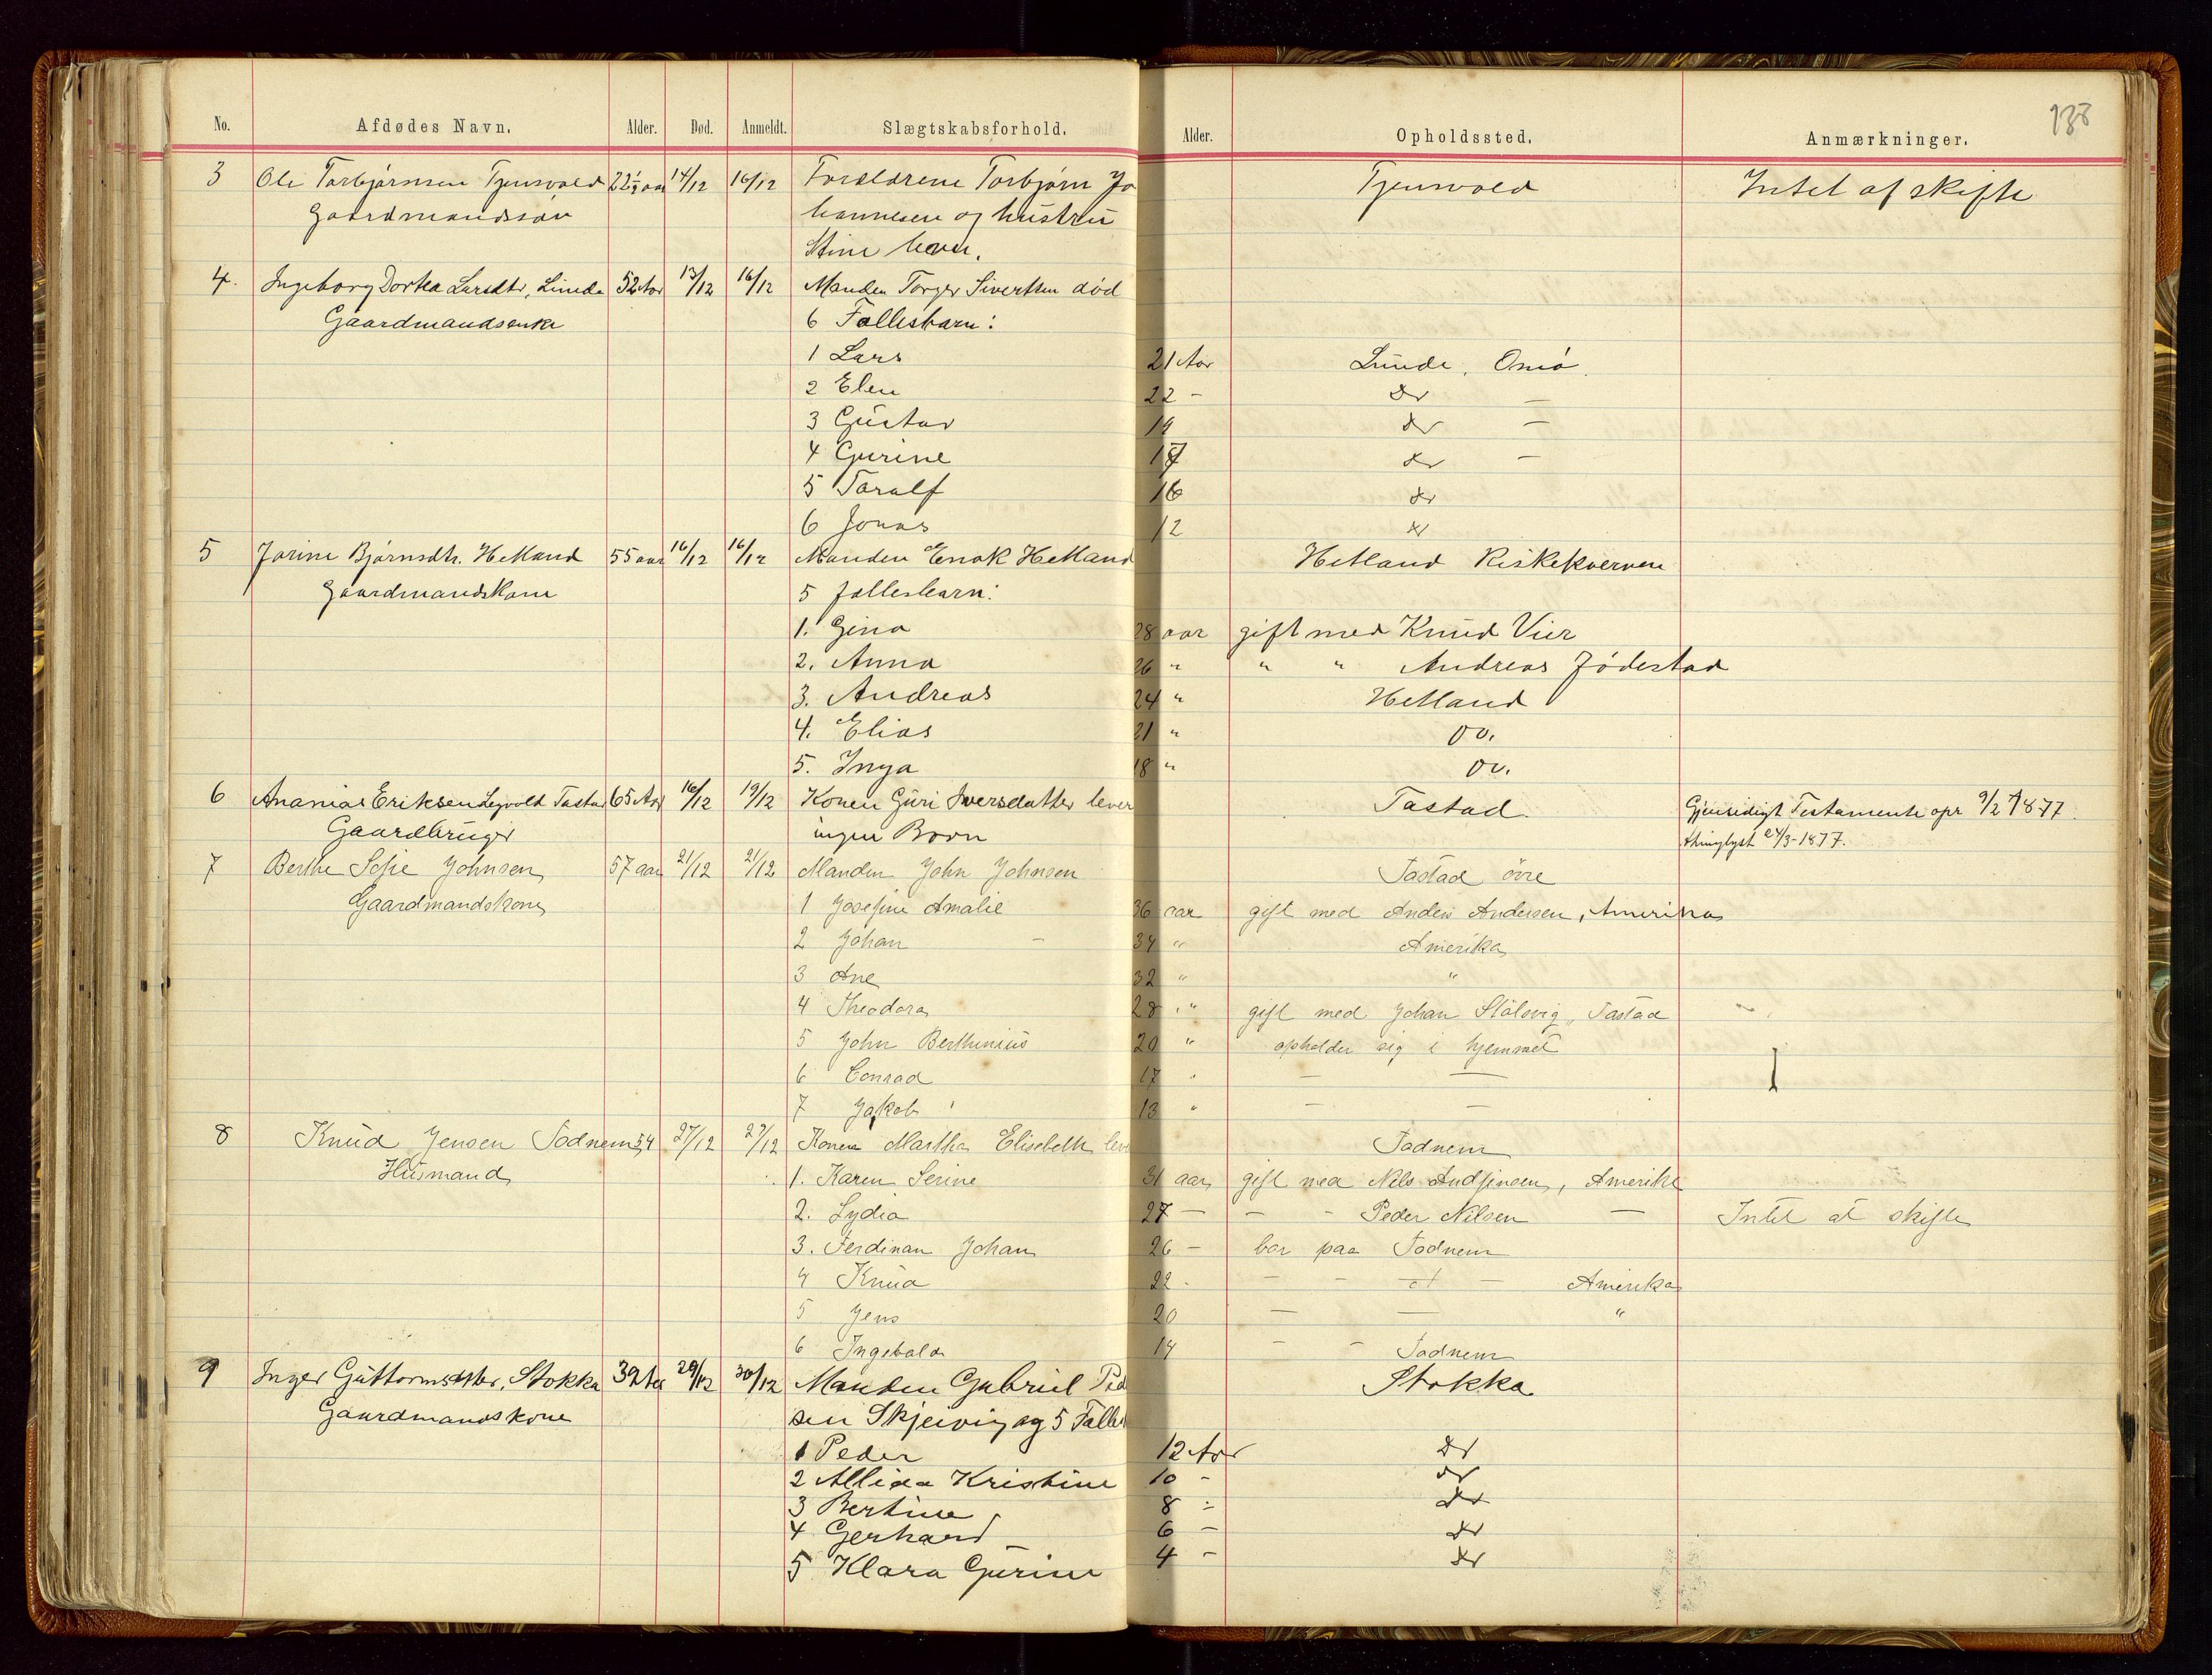 138
No. Afdødes Navn. Alder. Død. Anmeldt. Slægtskabsforhold. Alder. Opholdssted. Anmærkninger.
3 Ole Torbjørnsen Tjensvold 22½ aar 14/12 16/12 Forældrene Torbjørn Jo Tjensvold Intet at skifte
Gaardmandssøn hannesen og hustru
Stine lever.
4. Ingeborg Dortea Larsdtr, Lunde 52 Aar 13/12 16/12 Manden Torger Sivertsen død
Gaardmandsenke 6 Fællesbarn:
1 Lars 21 Aar Lunde, Omø.
2 Elen 22 - do -
3 Gustav 19 do -
4 Gurine 17 do -
5 Toralf 16 do
6 Jonas 12 do
5 Jorine Bjørnsdtr. Hetland 55 aar 16/12 16/12 Manden Enok Hetland Hetland Riskekvernen
Gaardmandskone 5 fællesbarn:
1. Gina 28 aar gift med Knud Vier
2. Anna 26 " " " Andreas Jødestad
3. Andreas 24 " Hetland
4. Elias 21 " do.
5. Inga 18 " do.
6 Ananias Eriksen Tastad 65 Aar 16/12 19/12 Konen Guri Iversdatter lever Tastad Gjensidigt Testamente opr 9/2 1877.
Gaardbruger ingen Born thinglyst 24/3-1877.
7 Berthe Sofie Johnsen 57 aar 21/12 21/12 Manden John Johnsen Tastad övre
Gaardmandskone 1 Josefine Amalie 36 aar gift med Anders Andersen, Amerika
2 Johan - 34 " Amerika
3 Ane 32 " "
4 Theodora 28 " gift med Johan Stölsvig, Tastad
5 John Berthinius 20 " opholder sig i hjemmet
6 Conrad 17 " - -
7 Jakob 13 " - -
8 Knud Jensen Todnem 54 27/12 27/12 Konen Martha Elisebeth leve Todnem
Husmand 1. Karen Serine 31 aar gift med Nils Andfinsen, Amerika
2. Lydia 27 - - - Peder Nilsen - Intet at skifte
3. Ferdinan Johan 26 - bor paa Todnem
4 Knud 22 - - - - Amerika
5 Jens 20 - - "
6 Ingebald 14 - - Todnem
9 Inger Guttormsdtter, Stokka 39 Aar 29/12 30/12 Manden Gabriel Ped Stokka
Gaardmandskone sen Skjeivig og 5 Fælles
1 Peder 12 Aar do
2 Allida Kristine 10 - do
3 Bertine 8 - do
4 Gerhard 6 - do
5 Klara Gurine 4 - do